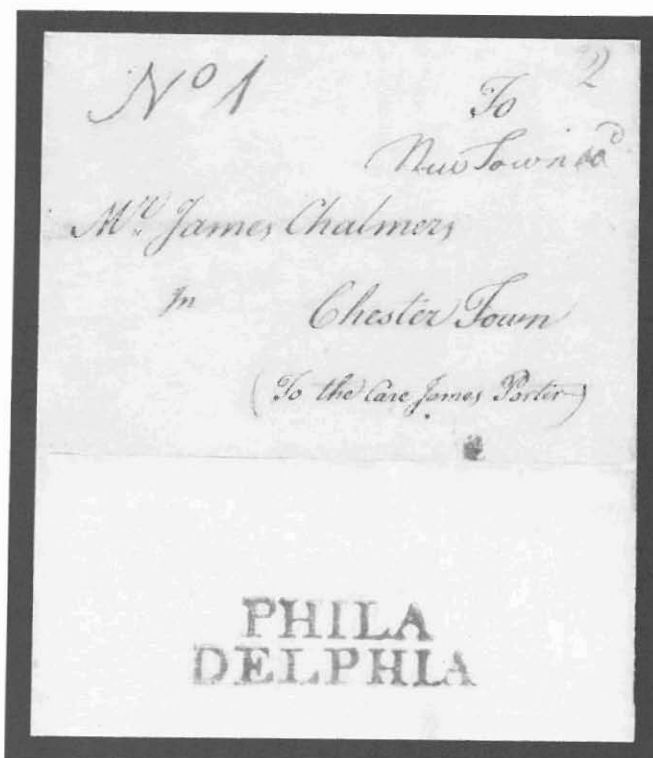 No 1
2
To
New Town
Mr. James Chalmers
In
Chester Town
(To the Care James Porter)
PHILA
DELPHIA